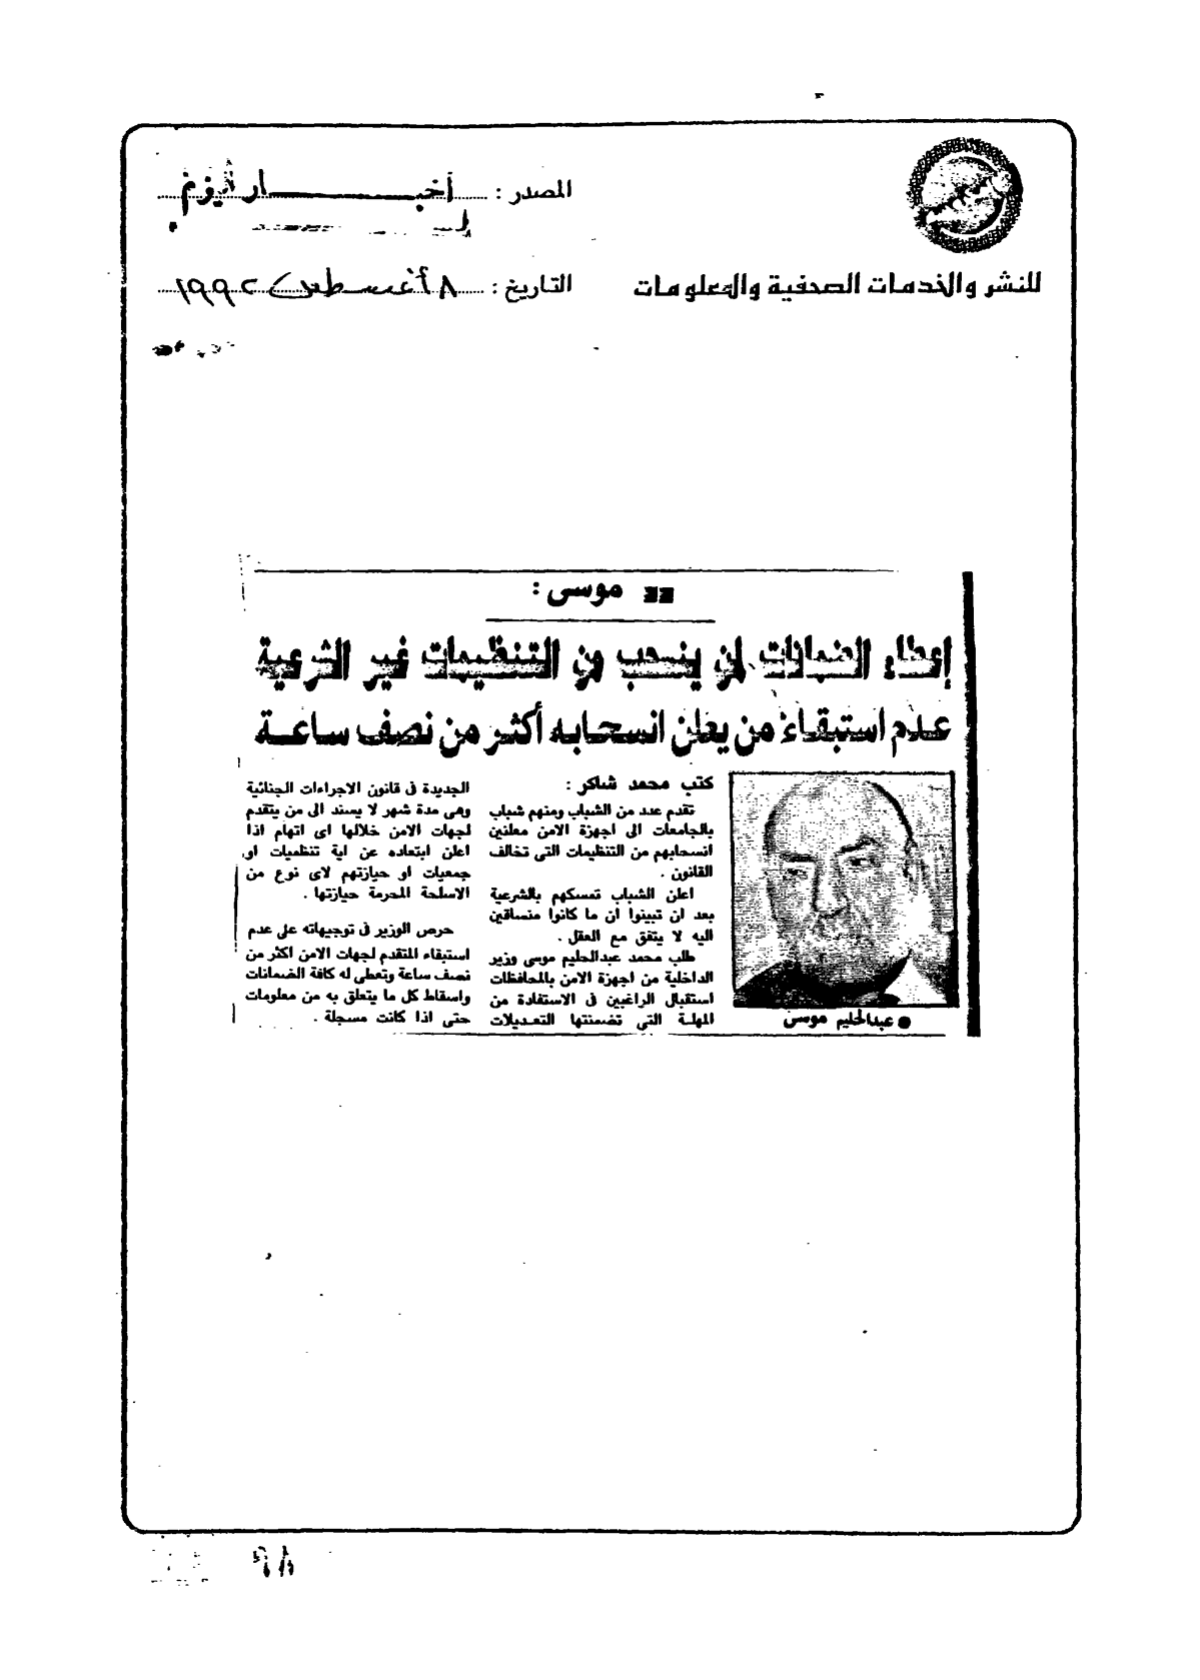 المصدر : أخبار اليوم
للنشر والخدمات الصحفية والمعلومات
التاريخ : ٨ أغسطس ١٩٩٢
موسى :
إعطاء الضمانات لمن ينسحب من التنظيمات غير الشرعية
عدم استبقاء من يعلن انسحابه أكثر من نصف ساعة
● عبدالحليم موسى
كتب محمد شاكر :
تقدم عدد من الشباب ومنهم شباب
بالجامعات الى اجهزة الامن معلنين
انسحابهم من التنظيمات التى تخالف
القانون .
اعلن الشباب تمسكهم بالشرعية
بعد ان تبينوا ان ما كانوا منساقين
اليه لا يتفق مع العقل .
طلب محمد عبدالحليم موسى وزير
الداخلية من اجهزة الامن بالمحافظات
استقبال الراغبين فى الاستفادة من
المهلة التى تضمنتها التعديلات
الجديدة فى قانون الاجراءات الجنائية
وهى مدة شهر لا يسند الى من يتقدم
لجهات الامن خلالها اى اتهام اذا
اعلن ابتعاده عن اية تنظميات او
جمعيات او حيازتهم لاى نوع من
الاسلحة المحرمة حيازتها .
حرص الوزير فى توجيهاته على عدم
استبقاء المتقدم لجهات الامن اكثر من
نصف ساعة وتعطى له كافة الضمانات
واسقاط كل ما يتعلق به من معلومات
حتى اذا كانت مسجلة .